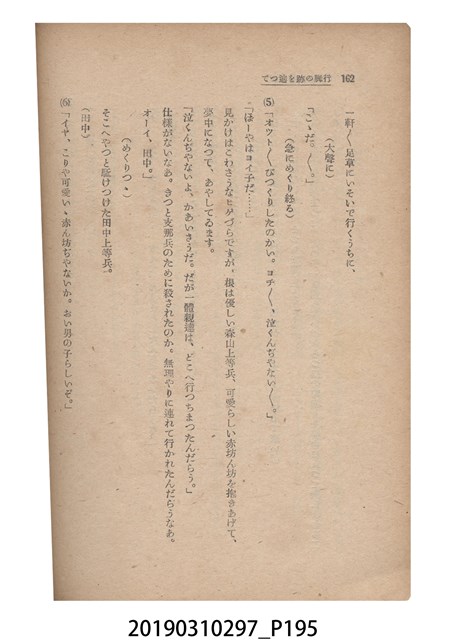 162 行興の跡を追つて
一軒〱足早にいそいで行くうちに、
(大聲に)
『こゝだ。〱。』
(急にめくり終る)
(5)『オツト〱びつくりしたのかい。ヨチ〱、泣くんぢやない〱。』
『ばーやはヨイ子だ……』
見かけはこわさうなヒゲづらですが、根は優しい森山上等兵、可愛らしい赤坊ん坊を抱きあげて、
夢中になつて、あやしてゐます。
『泣くんぢやないよ、かあいさうだ。だが一體親達は、どこへ行つちまつたんだらう。』
仕様がないなあ。きつと支那兵のために殺されたのか。無理やりに連れて行かれたんだらうなあ。
オーイ、田中。』
(めくりつゝ)
そこへやつと駈けつけた田中上等兵。
(田中)
(6)『イヤ、こりや可愛いゝ赤ん坊ぢやないか。おい男の子らしいぞ。』
20190310297_P195